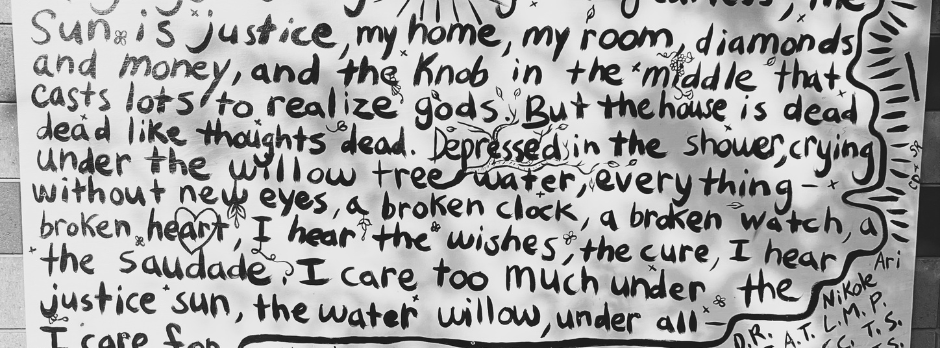 the
Sun is justice, my home, my room, diamonds
and money, and the Knob in the middle that
casts lots to realize gods. But the house is dead
dead like thoughts dead. Depressed in the shower, crying
under the willow tree water, everything –
without new eyes, a broken clock, a broken watch, a
broken heart, I hear the wishes, the cure, I hear
the saudade. I care too much under the
justice sun, the water willow, under all –
I care for
Ari
Nikole
L.M.P.
D.R.
A.T.
T.S.